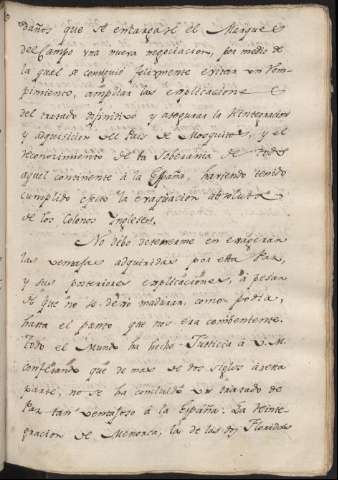 daños que se encargase el Marques
del Campo una nueva negociacion, por medio de
la qual se consiguió felizmente evitar un Rom-
pimiento, ampliar las explicaciones
del tratado difinitivo y asegurar la Reintegracion
y adquisicion del Pais de Mosquitos, y el
reconocimiento de la Soberania de todo
aquel continente à la España, haviendo tenido
cumplido efecto la evaquacion absoluta
de los Colonos Ingleses.
No debo detenerme en exagerar
las ventajas adquiridas por esta Paz,
y sus posteriores explicaciones, à pesar
de que no se dejó madurar, como podia,
hasta el punto que nos era combeniente.
Todo el Mundo ha hecho Justicia à V.M.
confesando que de mas de dos siglos à esta
parte, no se ha concluido un tratado de
Paz tan ventajoso à la España. La Reinte-
gracion de Menorca, la de las dos Floridas